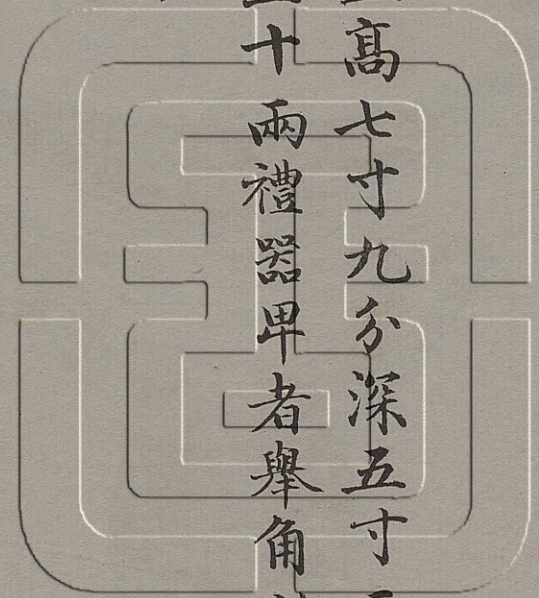 高七寸九分深五寸
十兩禮器卑者舉角